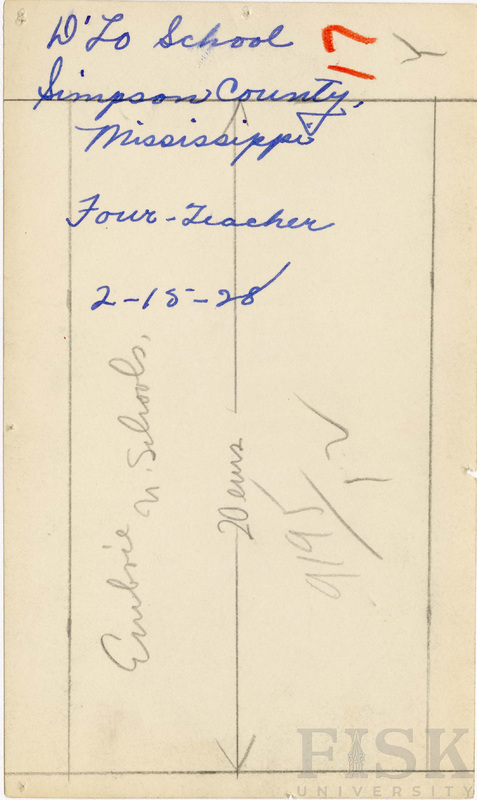 D'Lo School
17
Simpson County,
Mississippi
Four-Teacher
2-15-28
Embrie
n. Schools,
20 ems
9195/12
FISK
UNIVERSITY